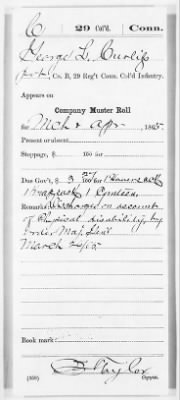 C 29 Col'd. Conn.
George L.
Pvt., Co. B, 29 Reg't Conn. Col'd Infantry.
Appears on
Company Muster Roll
for Mch & Apr, 1865
Present or absent
Stoppage, $ 100 for
Due Gov't, $ 3 27/100 for 1 Haversack
1 Knapsack 1 Canteen
Remarks: Discharged on account
of Physical disability, by
order Maj. Genl
March 24/65
Book mark:
Taylor
(359) Copyist.